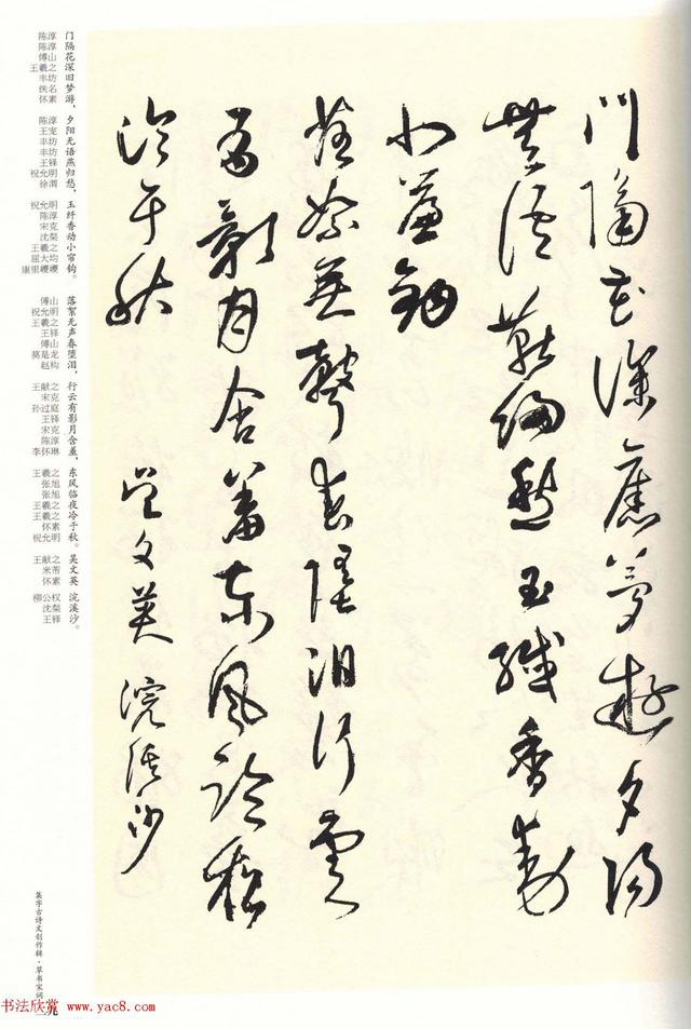 門隔花深舊夢遊夕陽
無語燕歸愁玉纖香動
小簾鉤
落絮無聲春墮泪行雲
有影月含羞東風臨夜
冷于秋 吳文英 浣溪沙
门隔花深旧梦游，夕阳无语燕归愁，玉纤香动小帘钩。
落絮无声春堕泪，行云有影月含羞，东风临夜冷于秋。吴文英 浣溪沙。
陈淳
陈淳
傅山
王羲之
丰坊
佚名
怀素
陈淳
王宠
丰坊
丰坊
王铎
祝允明
徐渭
祝允明
陈淳
宋克
沈粲
王羲之
屈大均
康里巎巎
傅山
祝允明
王羲之
王铎
傅山
莫是龙
赵构
王献之
宋克
孙过庭
王铎
宋克
陈淳
李怀琳
王羲之
张旭
张旭
王羲之
王羲之
怀素
祝允明
王献之
米芾
怀素
柳公权
沈粲
王铎
集字古诗文创作辑·草书宋词
二九
书法欣赏 www.yac8.com